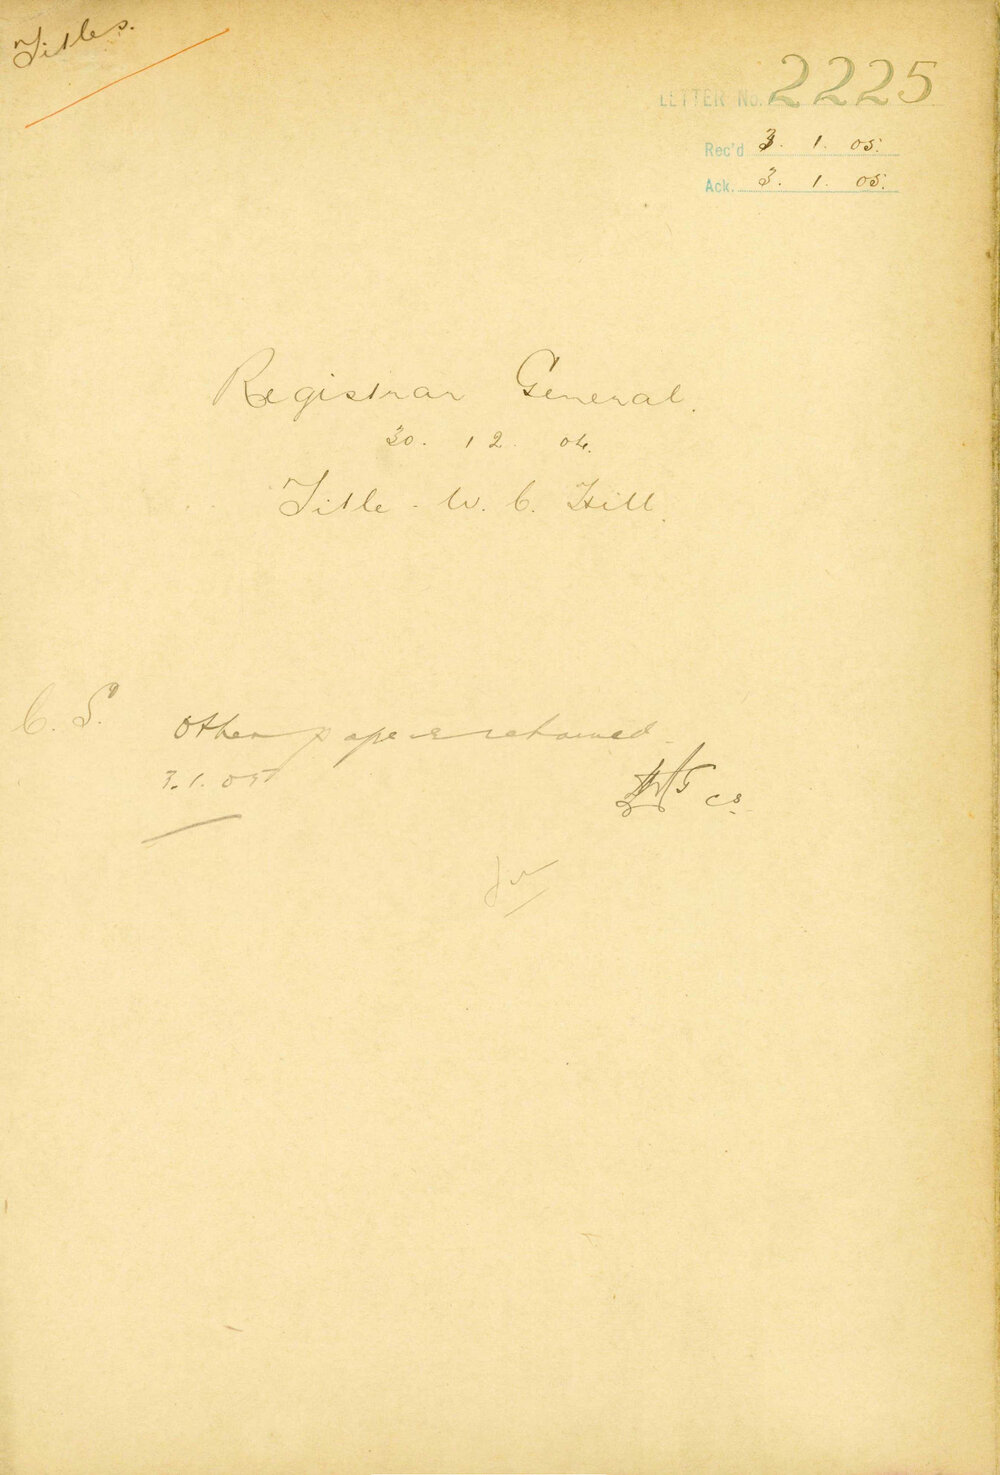 Titles.
LETTER No. 2225
Rec'd 3. 1. 05.
Ack. 3. 1. 05.
Registrar General.
30. 12. 04.
Title - W. C. Hill.
C. S.
Other papers returned
3.1.05
cs.